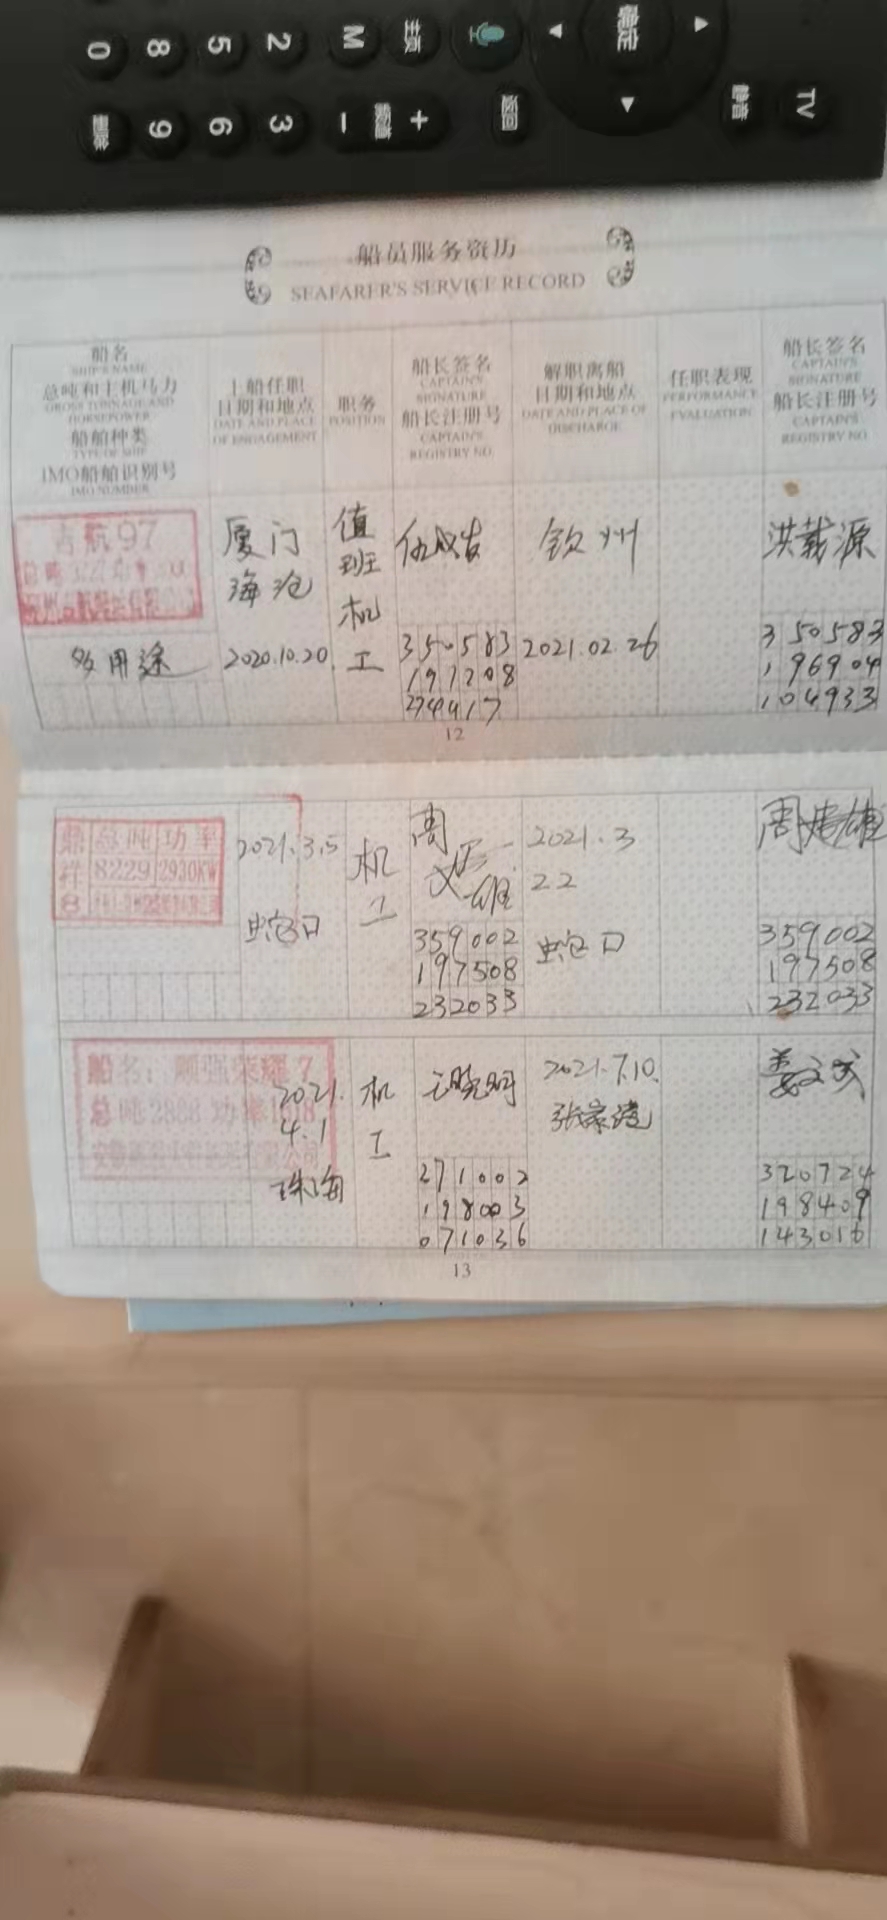 0 8 5 2 M 主页 确定
删除 9 6 3 - 频道 + 返回 静音 TV
船员服务资历
SEAFARER'S SERVICE RECORD
船名
SHIP'S NAME
总吨和主机马力
GROSS TONNAGE AND
HORSEPOWER
船舶种类
TYPE OF SHIP
IMO船舶识别号
IMO NUMBER
上船任职
日期和地点
DATE AND PLACE
OF ENGAGEMENT
职务
POSITION
船长签名
CAPTAIN'S
SIGNATURE
船长注册号
CAPTAIN'S
REGISTRY NO
解职离船
日期和地点
DATE AND PLACE OF
DISCHARGE
任职表现
PERFORMANCE
EVALUATION
船长签名
CAPTAIN'S
SIGNATURE
船长注册号
CAPTAIN'S
REGISTRY NO
吉航97
总吨
多用途
厦门
海沧
2020.10.20
值
班
机
工
350583
197208
钦州
2021.02.26
洪载源
350583
196904
104933
12
鼎祥8
总吨 功率
8229 2930KW
2021.3.5
蛇口
机
工
周
雄
359002
197508
232033
2021.3
22
蛇口
周 雄
359002
197508
232033
船名：顺强荣耀7
总吨2888 功率1618
2021.
4.1
珠海
机
工
王晓明
271002
198003
071036
2021.7.10.
张家港
姜文武
320724
198409
143016
13